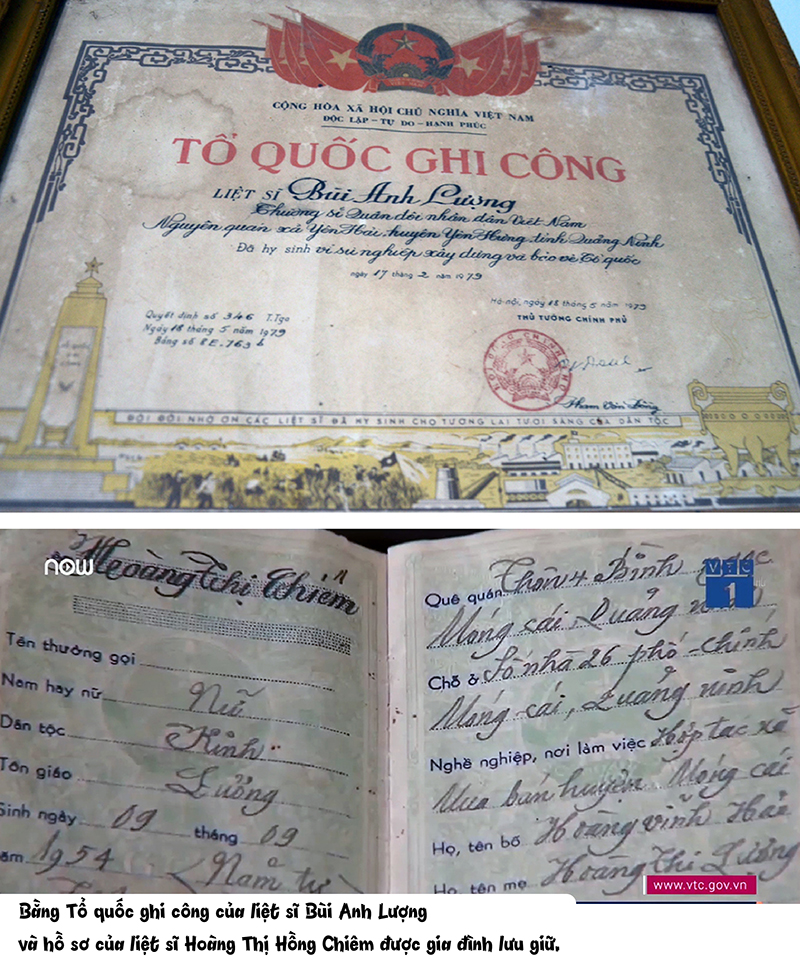 CỘNG HÒA XÃ HỘI CHỦ NGHĨA VIỆT NAM
ĐỘC LẬP - TỰ DO - HẠNH PHÚC
TỔ QUỐC GHI CÔNG
LIỆT SĨ Bùi Anh Lượng
Thượng sĩ Quân đội nhân dân Việt Nam
Nguyên quán xã Yên Hải, huyện Yên Hưng, tỉnh Quảng Ninh
Đã hy sinh vì sự nghiệp xây dựng và bảo vệ Tổ quốc
ngày 17 tháng 2 năm 1979
Quyết định số 346 T.Tga
Ngày 18 tháng 5 năm 1979
Bằng số RE.763 b
Hà nội, ngày 18 tháng 5 năm 1979
THỦ TƯỚNG CHÍNH PHỦ
Phạm Văn Đồng
ĐỜI ĐỜI NHỚ ƠN CÁC LIỆT SĨ ĐÃ HY SINH CHO TƯƠNG LAI TƯƠI SÁNG CỦA DÂN TỘC
now
Hoàng Thị Chiêm
Tên thường gọi
Nam hay nữ Nữ
Dân tộc Kinh
Tôn giáo Lương
Sinh ngày 09 tháng 09
năm 1954
VTC 1
Quê quán Thôn 4 Bình
Móng cái, Quảng ninh
Chỗ ở Số nhà 26 phố - chính
Móng - cái, Quảng ninh
Nghề nghiệp, nơi làm việc Hợp tác xã
Mua bán huyện Móng cái
Họ, tên bố Hoàng vĩnh Hải
Họ, tên mẹ Hoàng thị Lưỡng
www.vtc.gov.vn
Bằng Tổ quốc ghi công của liệt sĩ Bùi Anh Lượng
và hồ sơ của liệt sĩ Hoàng Thị Hồng Chiêm được gia đình lưu giữ.